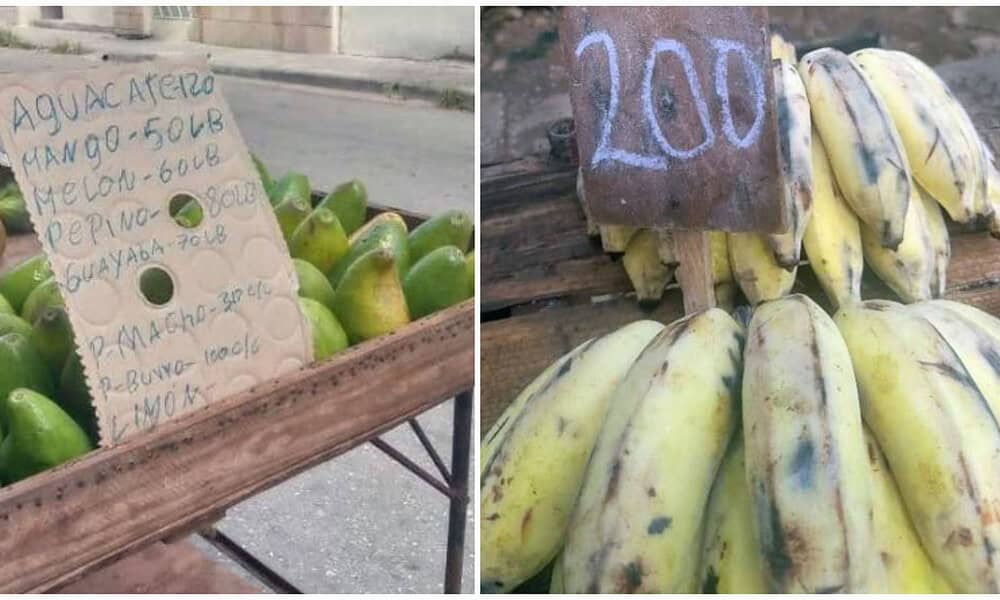 AGUACATE-120
MANGO-50LB
MELON-60LB
PEPINO-80LB
GUAYABA-70LB
P-MACHO-30c/c
P-BURRO-100c/c
LIMÓN-
200